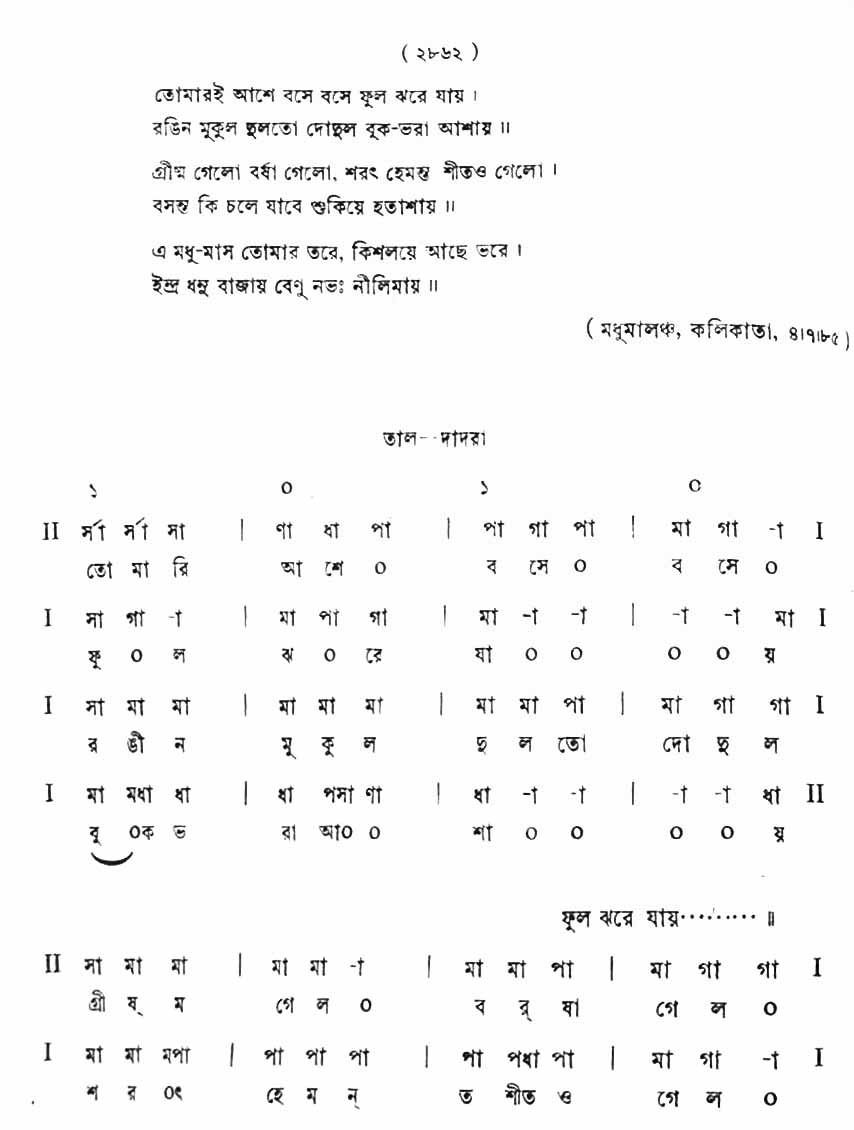 ( ২৮৬২ )
তোমারই আশে বসে বসে ফুল ঝরে যায় ।
রঙিন মুকুল দুলতো দোদুল বুক-ভরা আশায় ॥
গ্রীষ্ম গেলো বর্ষা গেলো, শরৎ হেমন্ত শীতও গেলো ।
বসন্ত কি চলে যাবে শুকিয়ে হতাশায় ॥
এ মধু-মাস তোমার তরে, কিশলয়ে আছে ভরে ।
ইন্দ্র ধনু বাজায় বেণু নভঃ নীলিমায় ॥
( মধুমালঞ্চ, কলিকাতা, ৪।৭।৮৫ )
তাল-- দাদরা
১ ০ ১ ০
II র্সা র্সা সা | ণা ধা পা | পা গা পা | মা গা -া I
তো মা রি আ শে ০ ব সে ০ ব সে ০
I সা গা -া | মা পা গা | মা -া -া | -া -া মা I
ফু ০ ল ঝ ০ রে যা ০ ০ ০ ০ য়
I সা মা মা | মা মা মা | মা মা পা | মা গা গা I
র ঙী ন মু কু ল দু ল তো দো দু ল
I মা মধা ধা | ধা পসা ণা | ধা -া -া | -া -া ধা II
বু ০ক ভ রা আ০ ০ শা ০ ০ ০ ০ য়
ফুল ঝরে যায়·········॥
II সা মা মা | মা মা -া | মা মা পা | মা গা গা I
গ্রী ষ্ ম গে ল ০ ব র্ ষা গে ল ০
I মা মা মপা | পা পা পা | পা পধা পা | মা গা -া I
শ র ০ৎ হে ম ন্ ত শীত ও গে ল ০